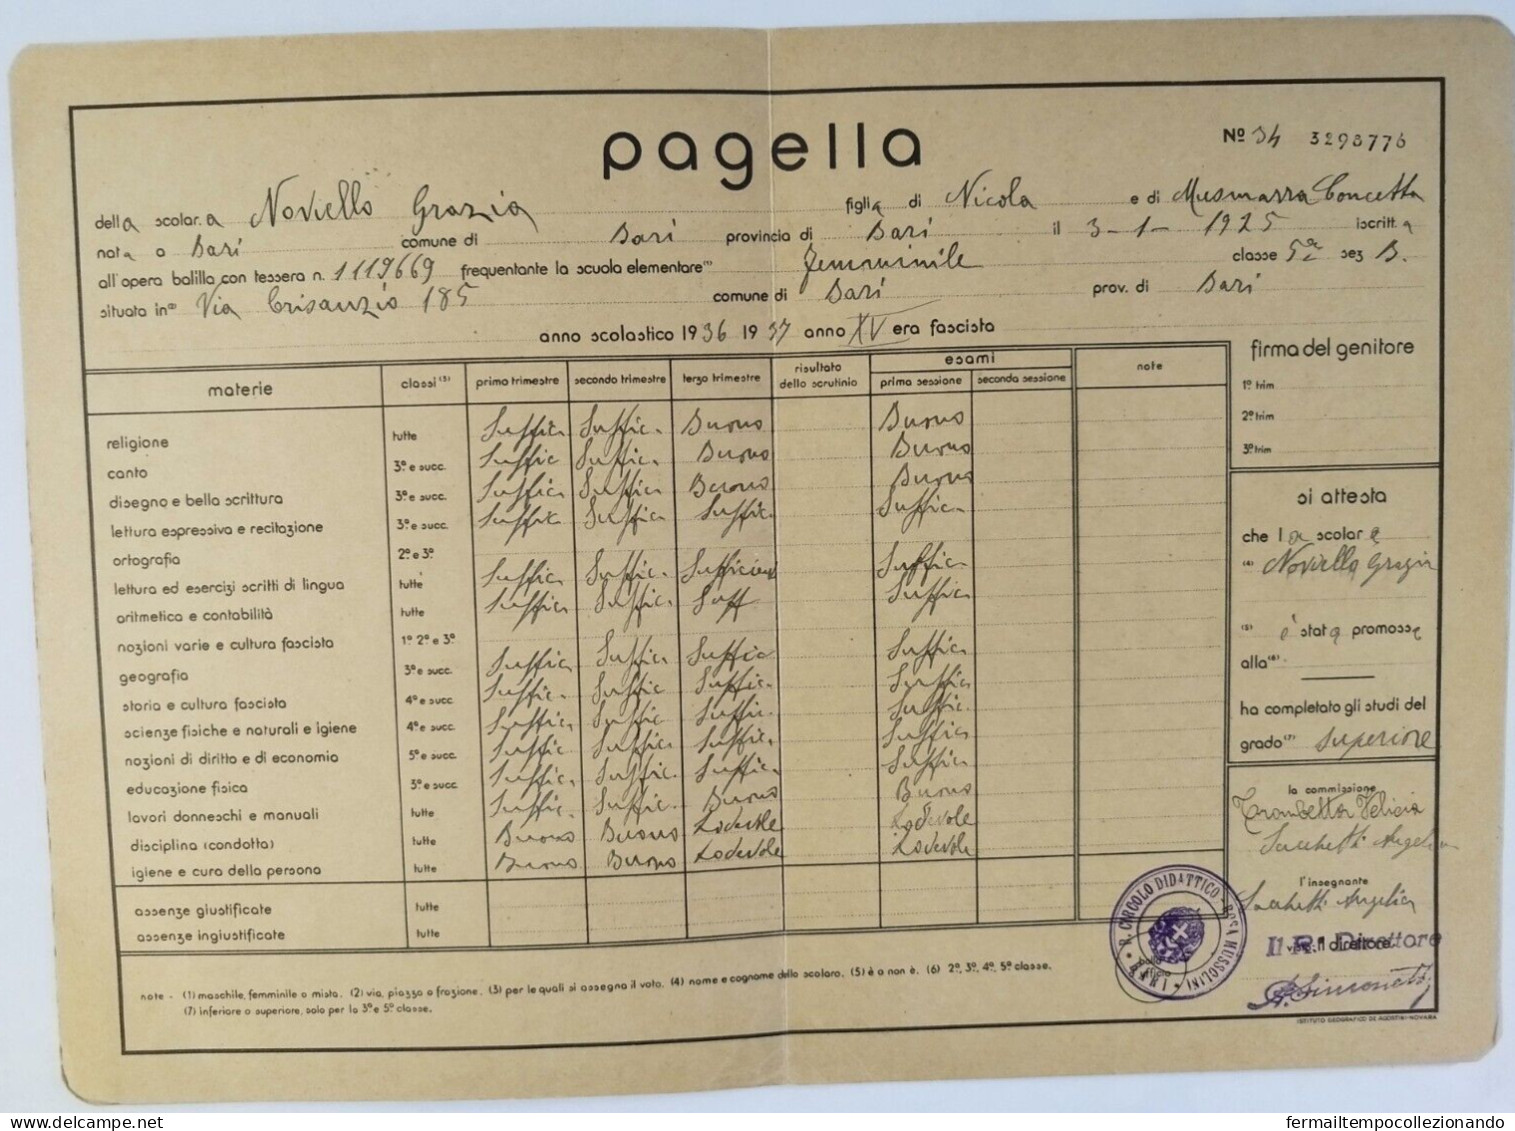 pagella
Nº 34 3298776
della scolara Noviello Grazia figlia di Nicola e di Musmarra Concetta
nata a Bari comune di Bari provincia di Bari il 3-1-1925 iscritta
all'opera balilla con tessera n. 1119669 frequentante la scuola elementare (1) femminile classe 5a sez B.
situata in (2) Via Crisanzio 185 comune di Bari prov. di Bari
anno scolastico 1936 1937 anno XV era fascista
materie classi (3) primo trimestre secondo trimestre terzo trimestre risultato dello scrutinio esami prima sessione seconda sessione note
religione tutte Suffic. Suffic. Buono Buono
canto 3ª e succ. Suffic Suffic. Buono Buono
disegno e bella scrittura 3ª e succ. Suffic. Suffic. Buono Buono
lettura espressiva e recitazione 3ª e succ. Suffic. Suffic. Suffic. Suffic.
ortografia 2ª e 3ª
lettura ed esercizi scritti di lingua tutte Suffic. Suffic. Sufficiente Suffic.
aritmetica e contabilità tutte Suffic. Suffic. Suff Suffic.
nozioni varie e cultura fascista 1ª 2ª e 3ª
geografia 3ª e succ. Suffic. Suffic. Suffic Suffic.
storia e cultura fascista 4ª e succ. Suffic. Suffic Suffic. Suffic.
scienze fisiche e naturali e igiene 4ª e succ. Suffic. Suffic. Suffic. Suffic.
nozioni di diritto e di economia 5ª e succ. Suffic. Suffic. Suffic. Suffic.
educazione fisica 3ª e succ. Suffic. Suffic. Suffic. Suffic.
lavori donneschi e manuali tutte Suffic. Suffic. Buono Buono
disciplina (condotta) tutte Buono Buono Lodevole Lodevole
igiene e cura della persona tutte Buono Buono Lodevole Lodevole
assenze giustificate tutte
assenze ingiustificate tutte
firma del genitore
1º trim
2º trim
3º trim
si attesta
che la scolara
(4) Noviello Grazia
(5) è stata promossa
alla (6)
ha completato gli studi del
grado (7) superiore
la commissione
Trombetta Felicia
Sacchetti Angelica
l'insegnante
Sacchetti Angelica
visto, il direttore
Il R.º Direttore
A. Simonetti
R. CIRCOLO DIDATTICO "ROSA MUSSOLINI" BARI
bollo ufficio
note - (1) maschile, femminile o mista. (2) via, piazza o frazione. (3) per le quali si assegna il voto. (4) nome e cognome dello scolaro. (5) è o non è. (6) 2ª, 3ª, 4ª, 5ª classe.
(7) inferiore o superiore, solo per la 3ª e 5ª classe.
ISTITUTO GEOGRAFICO DE AGOSTINI-NOVARA
fermailtempocollezionando